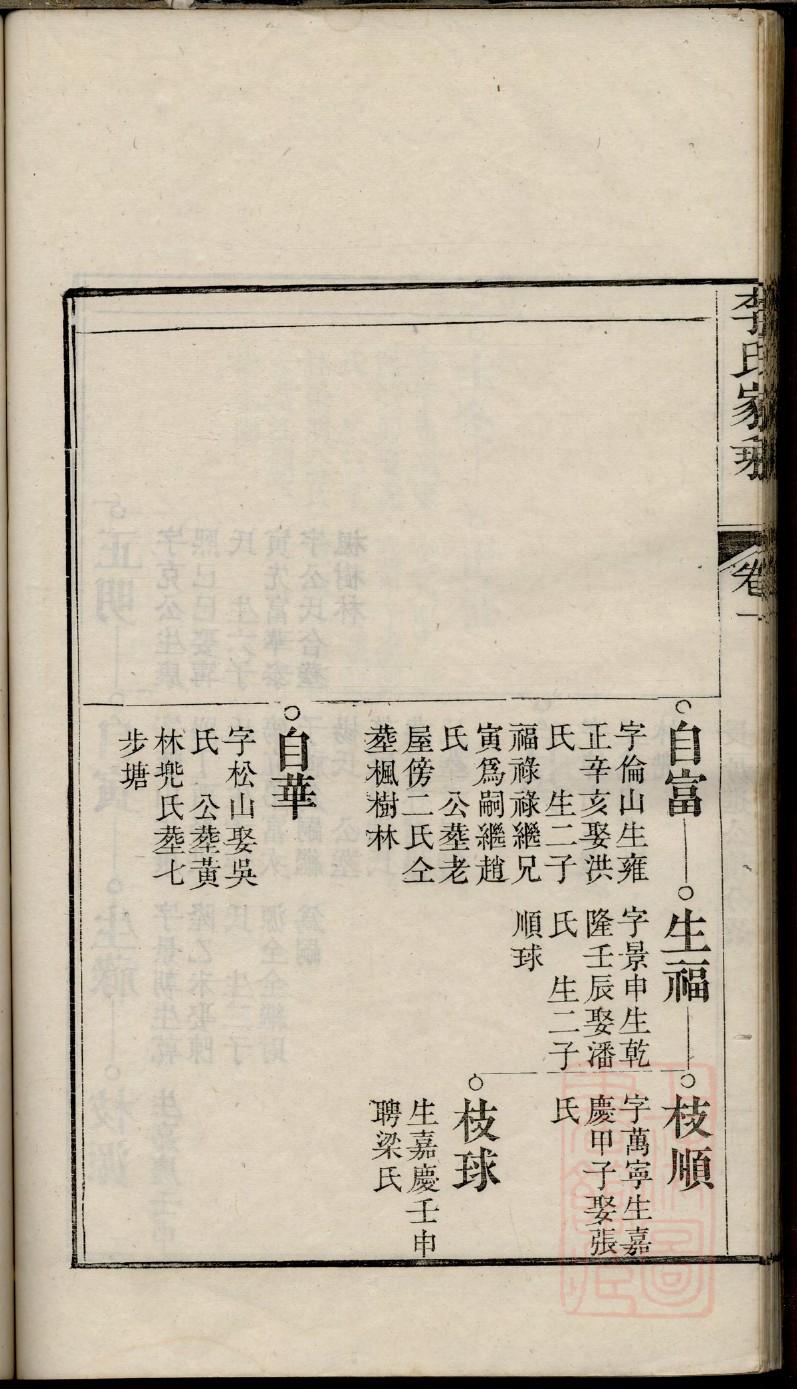 李氏家乘
卷一
自富
字倫山生雍
正辛亥娶洪
氏　生二子
福祿祿繼兄
寅爲嗣繼趙
氏　公塟老
屋傍二氏仝
塟楓樹林
生福
字景申生乾
隆壬辰娶潘
氏　生二子
順球
枝順
字萬寧生嘉
慶甲子娶張
氏
枝球
生嘉慶壬申
聘梁氏
自華
字松山娶吳
氏　公塟黃
林兠氏塟七
步塘